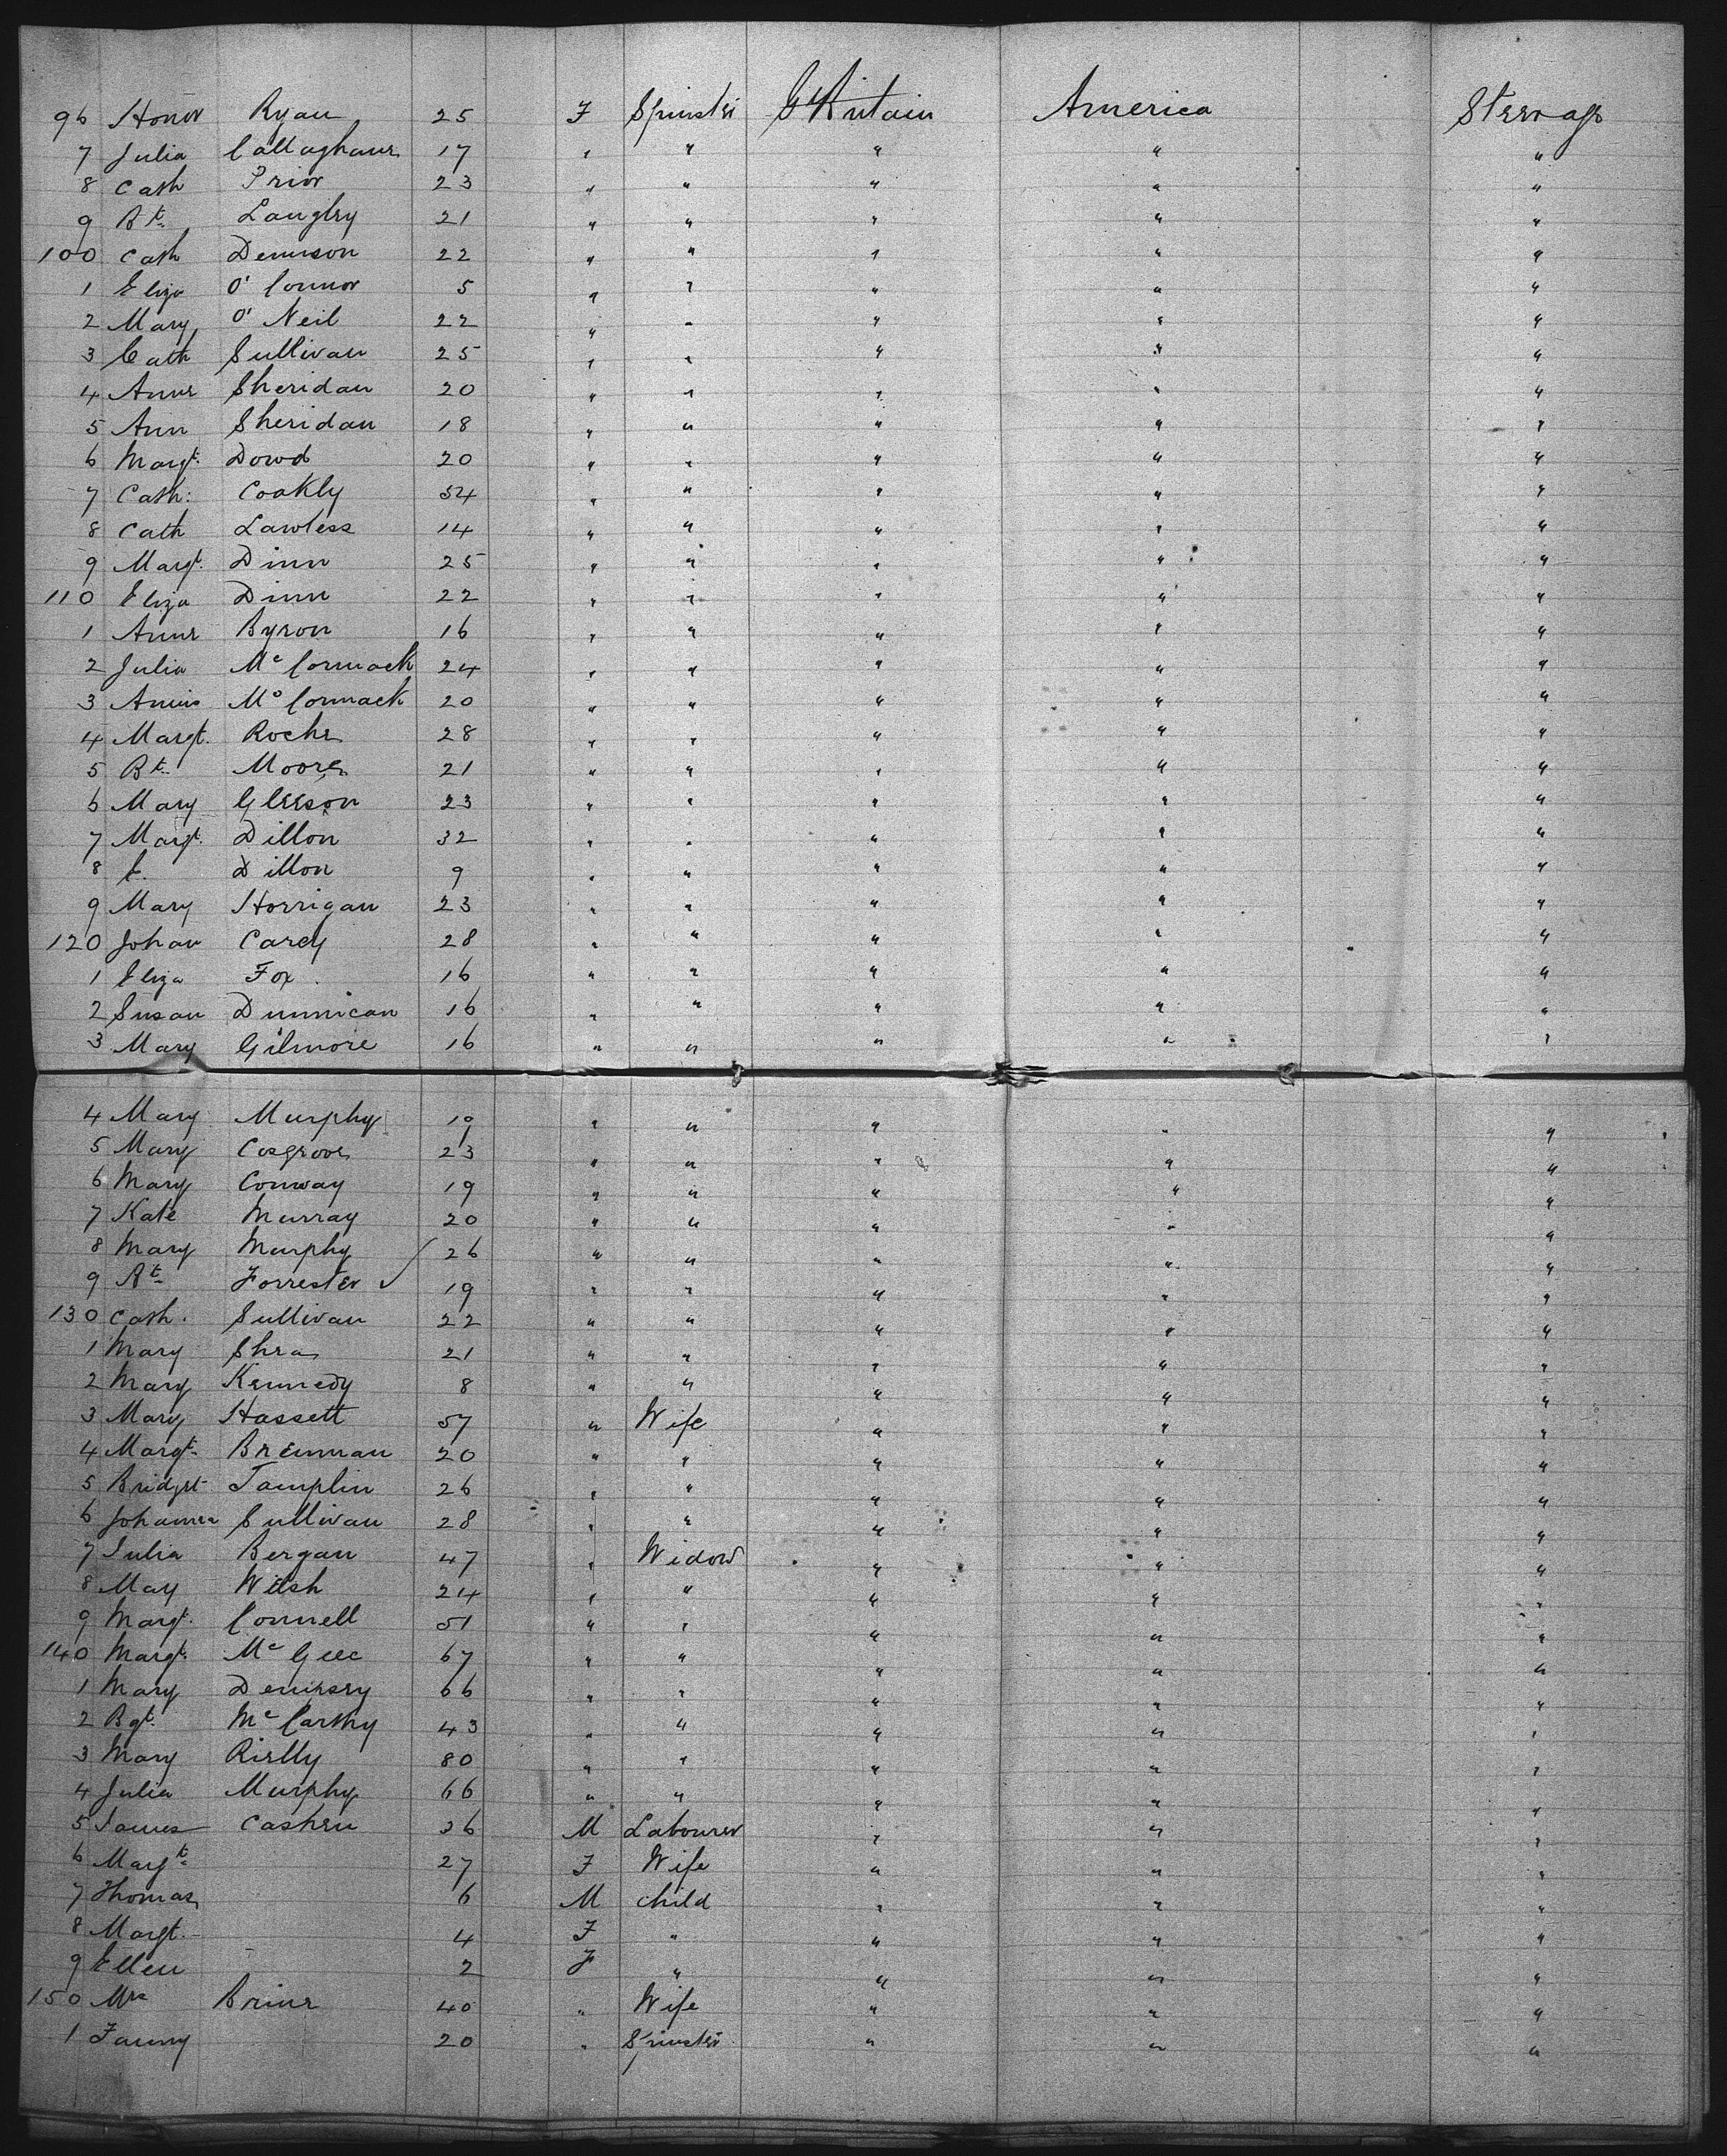 96 Honor Ryan 25 F Spinster Gt Britain America Steerage
7 Julia Callaghane 17 " " " " "
8 Cath Prior 23 " " " " "
9 Bt. Langley 21 " " " " "
100 Cath Dennison 22 " " " " "
1 Eliza O' Connor 5 " " " " "
2 Mary O' Neil 22 " " " " "
3 Cath Sullivan 25 " " " " "
4 Anne Sheridan 20 " " " " "
5 Ann Sheridan 18 " " " " "
6 Margt. Dowd 20 " " " " "
7 Cath: Coakly 34 " " " " "
8 Cath Lawless 14 " " " " "
9 Margt. Dinn 25 " " " " "
110 Eliza Dinn 22 " " " " "
1 Anne Byron 16 " " " " "
2 Julia Mc Cormack 24 " " " " "
3 Annie Mc Cormack 20 " " " " "
4 Margt. Roche 28 " " " " "
5 Bt. Moore 21 " " " " "
6 Mary Gleeson 23 " " " " "
7 Margt. Dillon 32 " " " " "
8 E. Dillon 9 " " " " "
9 Mary Horrigan 23 " " " " "
120 Johan Carey 28 " " " " "
1 Eliza Fox 16 " " " " "
2 Susan Dunnican 16 " " " " "
3 Mary Gilmore 16 " " " " "
4 Mary Murphy 19 " " " " "
5 Mary Cosgrove 23 " " " " "
6 Mary Conway 19 " " " " "
7 Kate Murray 20 " " " " "
8 Mary Murphy 26 " " " " "
9 Bt. Forrester 19 " " " " "
130 Cath. Sullivan 22 " " " " "
1 Mary Shea 21 " " " " "
2 Mary Kennedy 8 " " " " "
3 Mary Hassett 57 " Wife " " "
4 Margt. Brennan 20 " " " " "
5 Bridget Tamplin 26 " " " " "
6 Johanna Sullivan 28 " " " " "
7 Julia Bergan 47 " Widow " " "
8 May Welsh 24 " " " " "
9 Margt. Connell 51 " " " " "
140 Margt. Mc Gee 67 " " " " "
1 Mary Dempsey 66 " " " " "
2 Bgt. Mc Carthy 43 " " " " "
3 Mary Rielly 80 " " " " "
4 Julia Murphy 66 " " " " "
5 James Cashen 36 M Labourer " " "
6 Margt. 27 F Wife " " "
7 Thomas 6 M Child " " "
8 Margt. 4 F " " " "
9 Ellen 2 F " " " "
150 Mrs Brine 40 " Wife " " "
1 Fanny 20 " Spinster " " "